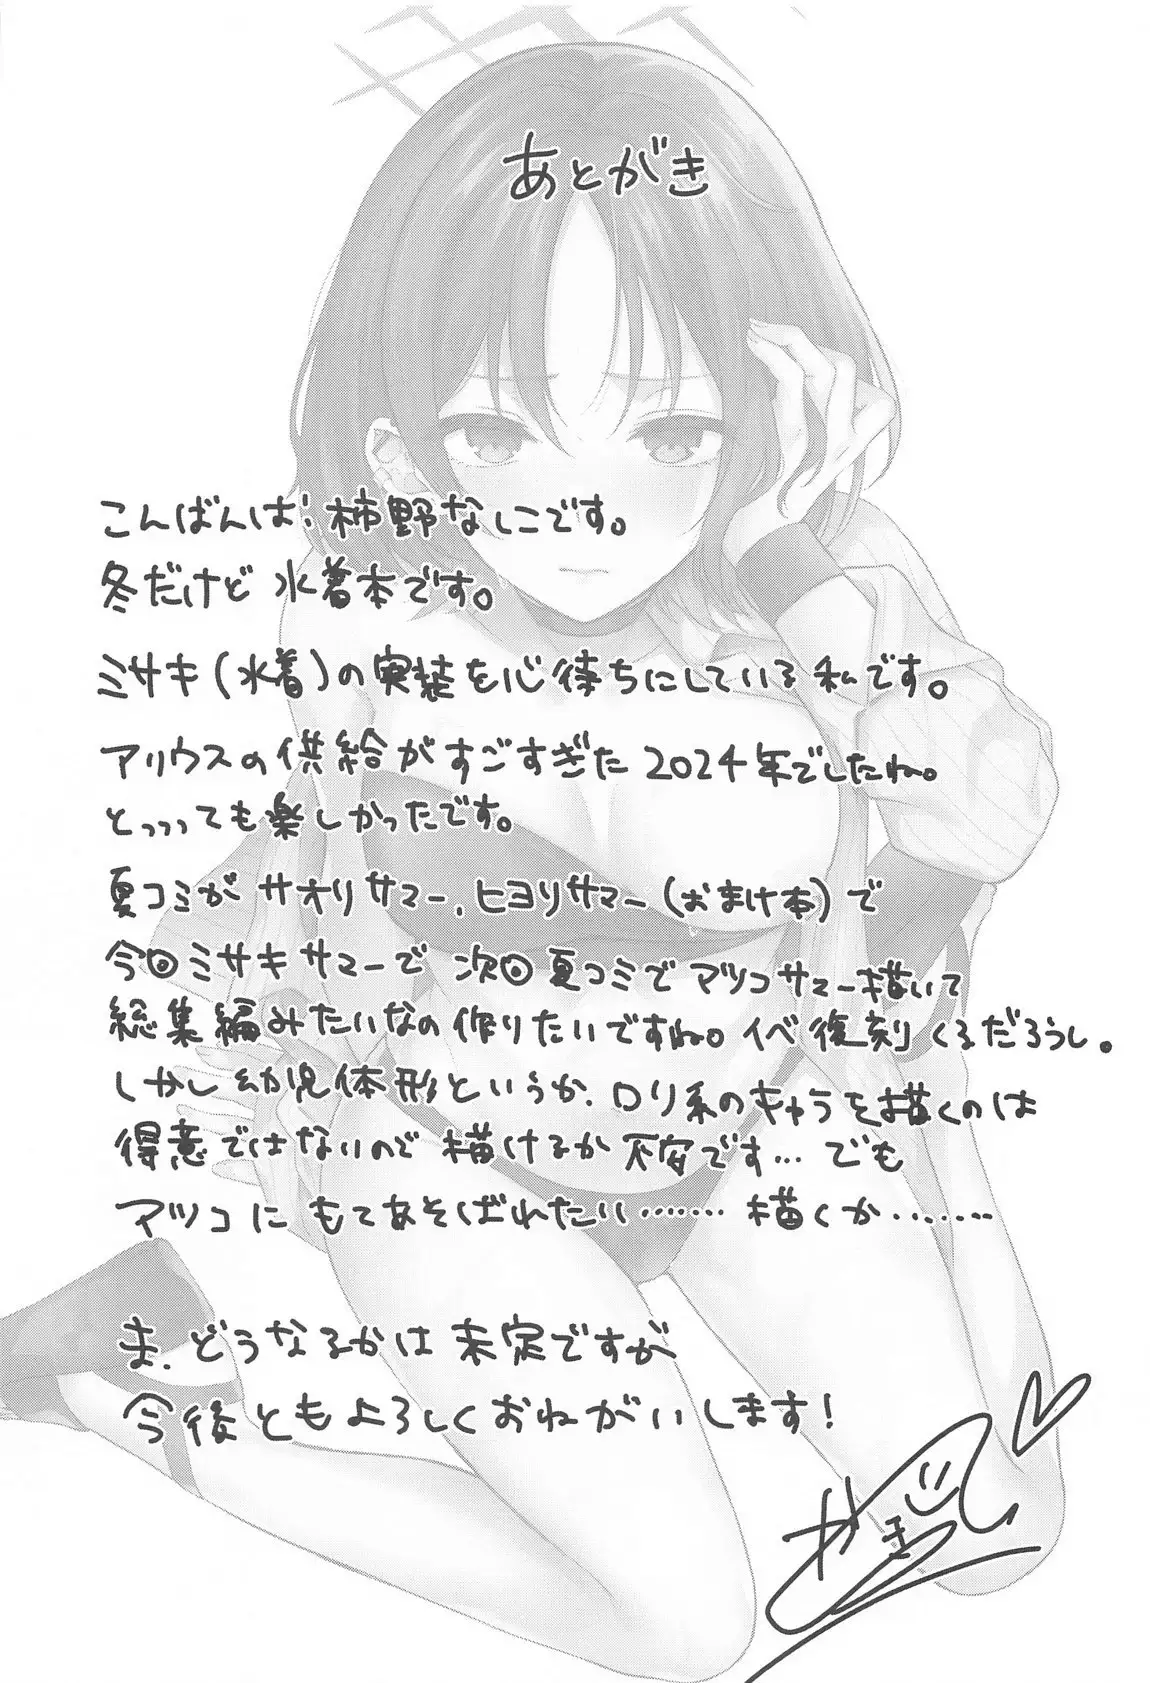 あとがき
こんばんは、柿野なしこです。
冬だけど 水着本です。
ミサキ(水着)の実装を心待ちにしている私です。
アリウスの供給がすごすぎた 2024年でしたね。
とっっっても楽しかったです。
夏コミが サオリサマー、ヒヨリサマー(おまけ本)で
今回ミサキサマーで 次回夏コミで アツコサマー描いて
総集編みたいなの作りたいですね。イベ復刻くるだろうし。
しかし幼児体形というか、ロリ系のキャラを描くのは
得意ではないので描けるか不安です… でも
アツコに もてあそばれたい……… 描くか………
ま、どうなるかは未定ですが
今後ともよろしくおねがいします!